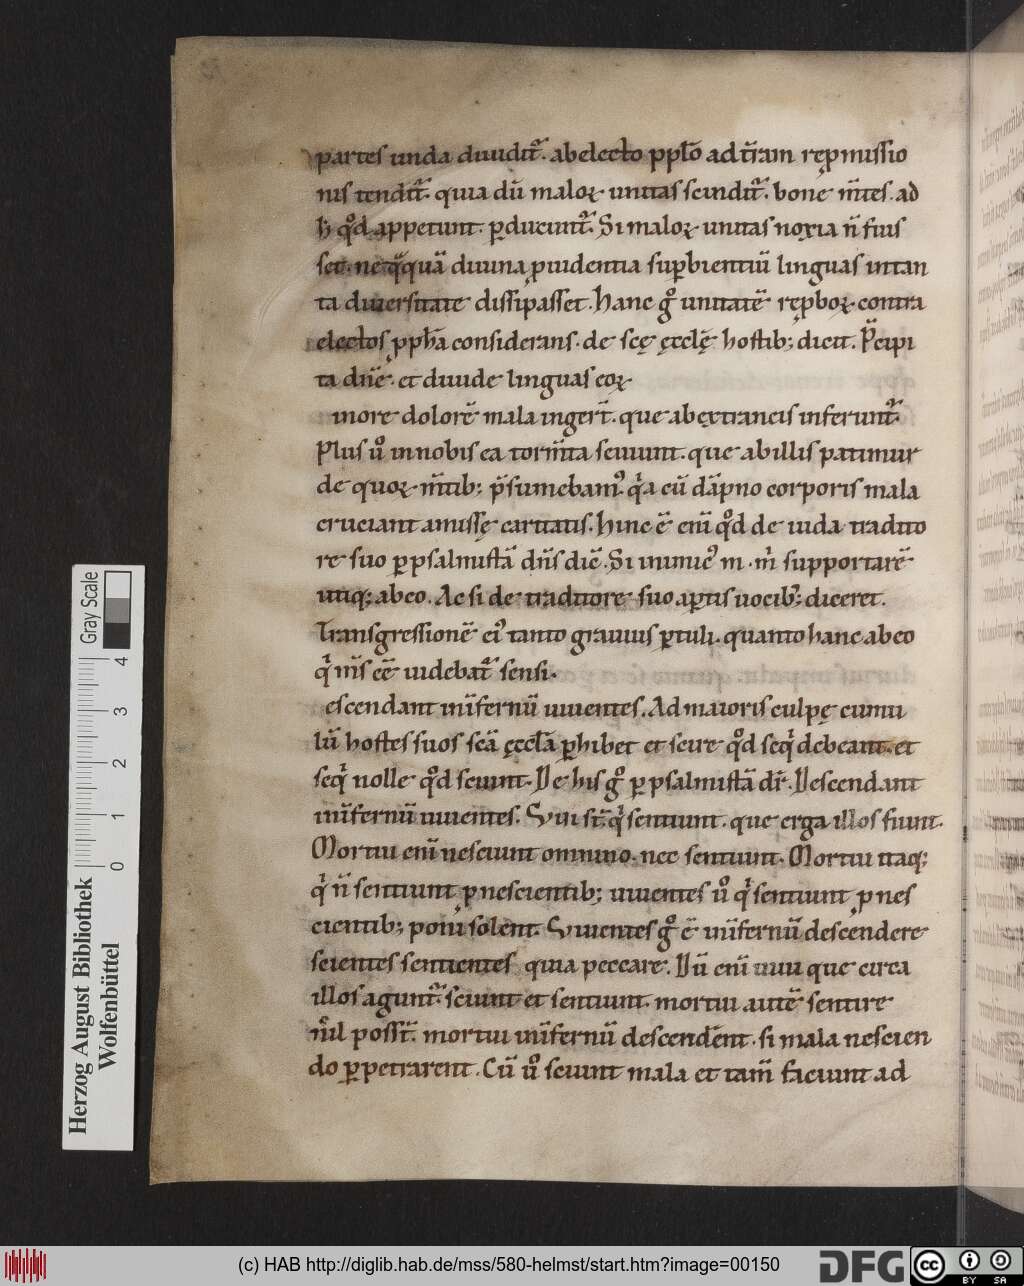 partes unda diuidit᷑. ab electo ppl̅o ad t̅ram rep̱missio
nis tendit᷑. quia du̅ maloꝝ unitas scindit᷑. bone m̅tes. ad
h̅ qd̕ appetunt. ꝑducunt᷑. Si maloꝝ unitas noxia n̅ fuis
set. neq̕qua̅ diuina ꝓuidentia supꝑbientiu̅ linguas in tan
ta diuersitate dissipasset. Hanc gͦ unitate̅ rep̱boꝝ contra
electos ꝓph̅a considerans. de sc̅ę ęccłę hostib; dicit. P̅cipi
ta dn̅e. et diuide linguas eoꝝ
inore dolore̅ mala inger̅t. que ab extraneis inferunt᷑.
Plus uͦ in nobis ea torm̅ta seuiunt. que ab illis patimur
de quoꝝ m̅tib; p̅sumebam᷒. qͥa cu̅ da̅pno corporis mala
cruciant amissę caritatis. Hinc e̅ eni̅ qd̕ de iuda tradito
re suo ꝑ psalmista̅ dn̅s dic̅. Si inimic᷒ m. mͥ supportare̅
utiq; ab eo. Ac si de traditore suo aꝑtis uocib; diceret.
Transgressione̅ ei᷒ tanto grauius ꝑtuli. quanto hanc ab eo
qͥ m̅s ee̅ uidebat᷑ sensi.
escendant in i̅fernu̅ uiuentes. Ad maioris culpę cumu
lu̅ hostes suos sc̅a ęccl̅a ꝑhibet et scire qd̕ seqͥ debeant. et
seqͥ nolle qd̕ sciunt. De his gͦ ꝑ psalmista̅ dr̅. Descendant
in i̅fernu̅ uiuentes. Uiui st̅ qͥ sentiunt. que erga illos fiunt.
Mortui eni̅ nesciunt omnino. nec sentiunt. Mortui itaq;
qͥ n̅ sentiunt ꝓ nescientib; uiuentes uͦ qͥ sentiunt ꝓ nes
cientib; poni solent. Uiuentes gͦ e̅ in i̅fernu̅ descendere
scientes sentientes quia peccare. Du̅ eni̅ uiui que circa
illos agunt᷑. sciunt et sentiunt. mortui aute̅ sentire
nͥl poss̅t. mortui in i̅fernu̅ descende̅nt. si mala nescien
do ꝑpetrarent. Cu̅ uͦ sciunt mala et tam̅ faciunt ad
Gray Scale
4
3
2
1
0
Herzog August Bibliothek
Wolfenbüttel
(c) HAB http://diglib.hab.de/mss/580-helmst/start.htm?image=00150
DFG
cc
BY SA